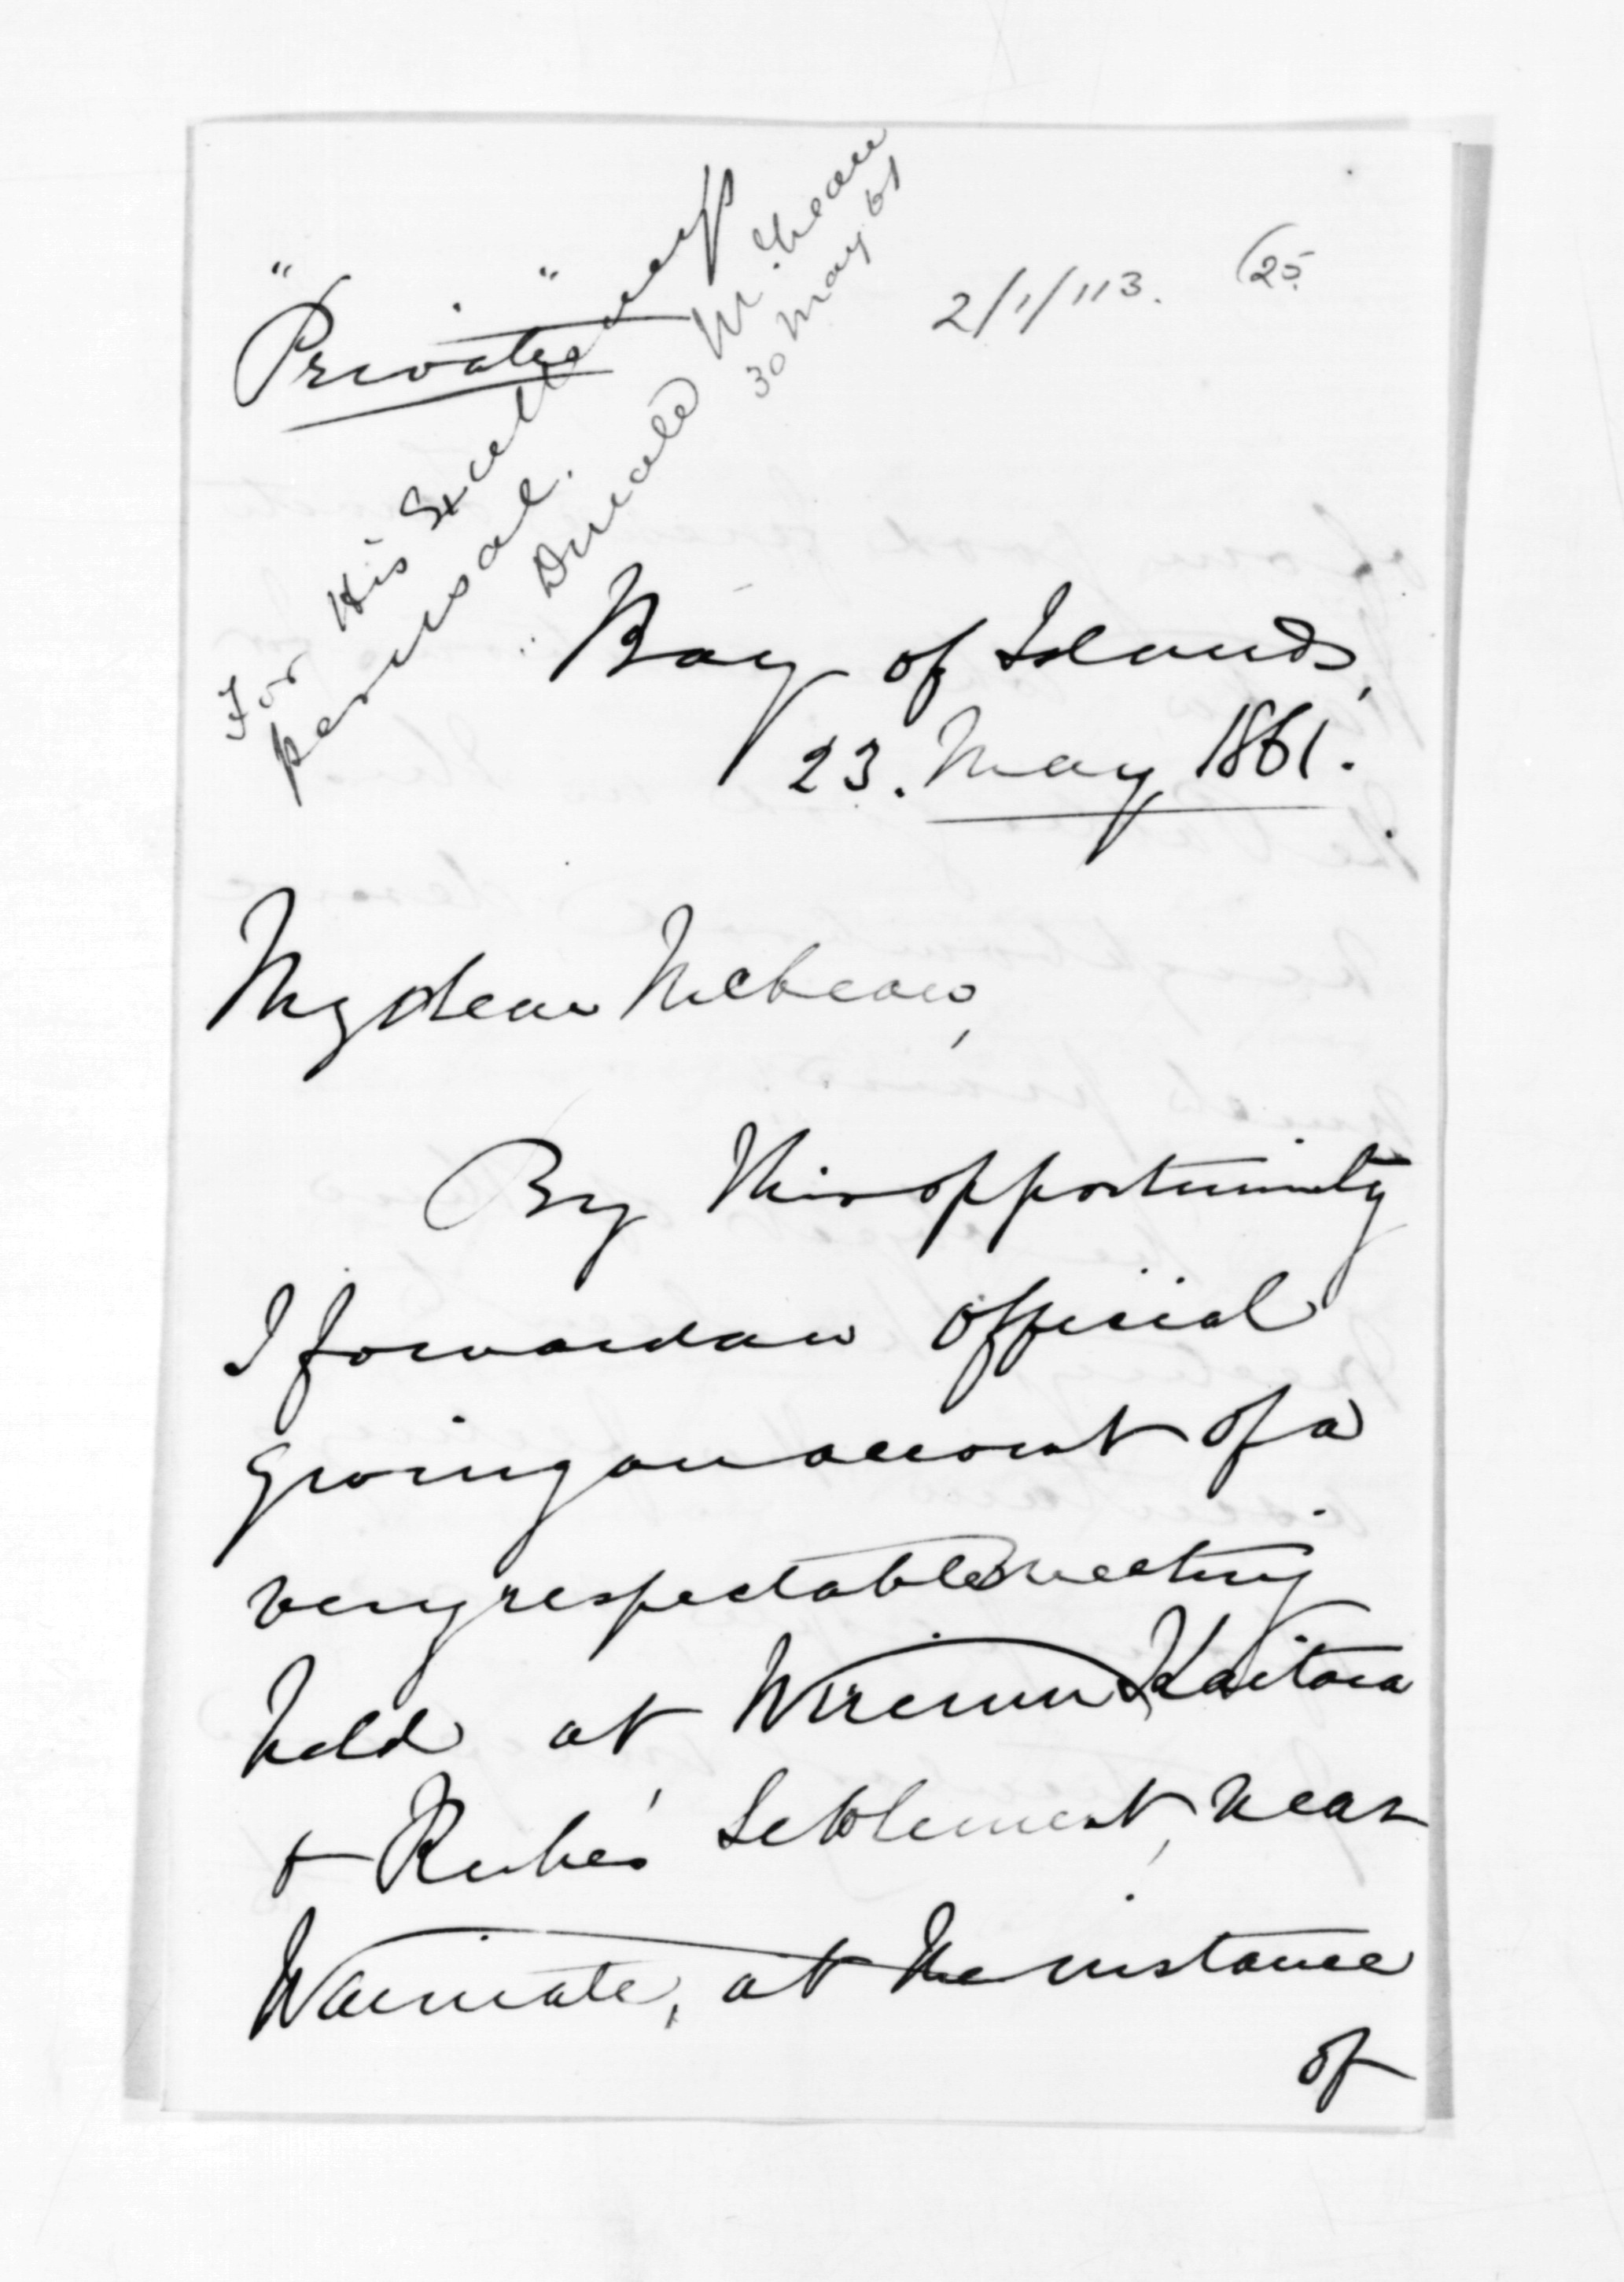 "Private"
For His Excellency's
perusal.
Donald McLean
30 May 61
2/1/113.
(25.
Bay of Islands,
23. May, 1861.
My dear McLean,
By this opportunity
I forward an official
giving an account of a
very respectable meeting
held at Wiremu Kaitara
& Ruhe's Settlement, near
Waimate, at the instance
of